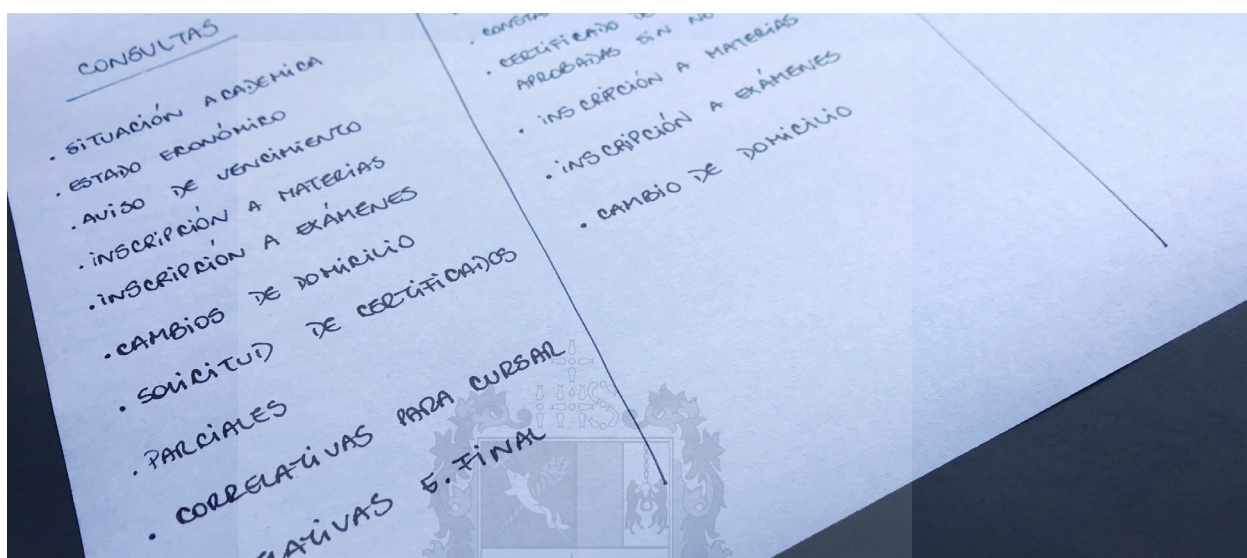 CONSULTAS
. SITUACIÓN ACADEMICA
. ESTADO ECONÓMICO
. AVISO DE VENCIMIENTO
. INSCRIPCIÓN A MATERIAS
. INSCRIPCIÓN A EXÁMENES
. CAMBIOS DE DOMICILIO
. SOLICITUD DE CERTIFICADOS
. PARCIALES
. CORRELATIVAS PARA CURSAR
E. FINAL
. CERTIFICADO DE
APROBADAS SIN
. INSCRIPCIÓN A MATERIAS
. INSCRIPCIÓN A EXÁMENES
. CAMBIO DE DOMICILIO